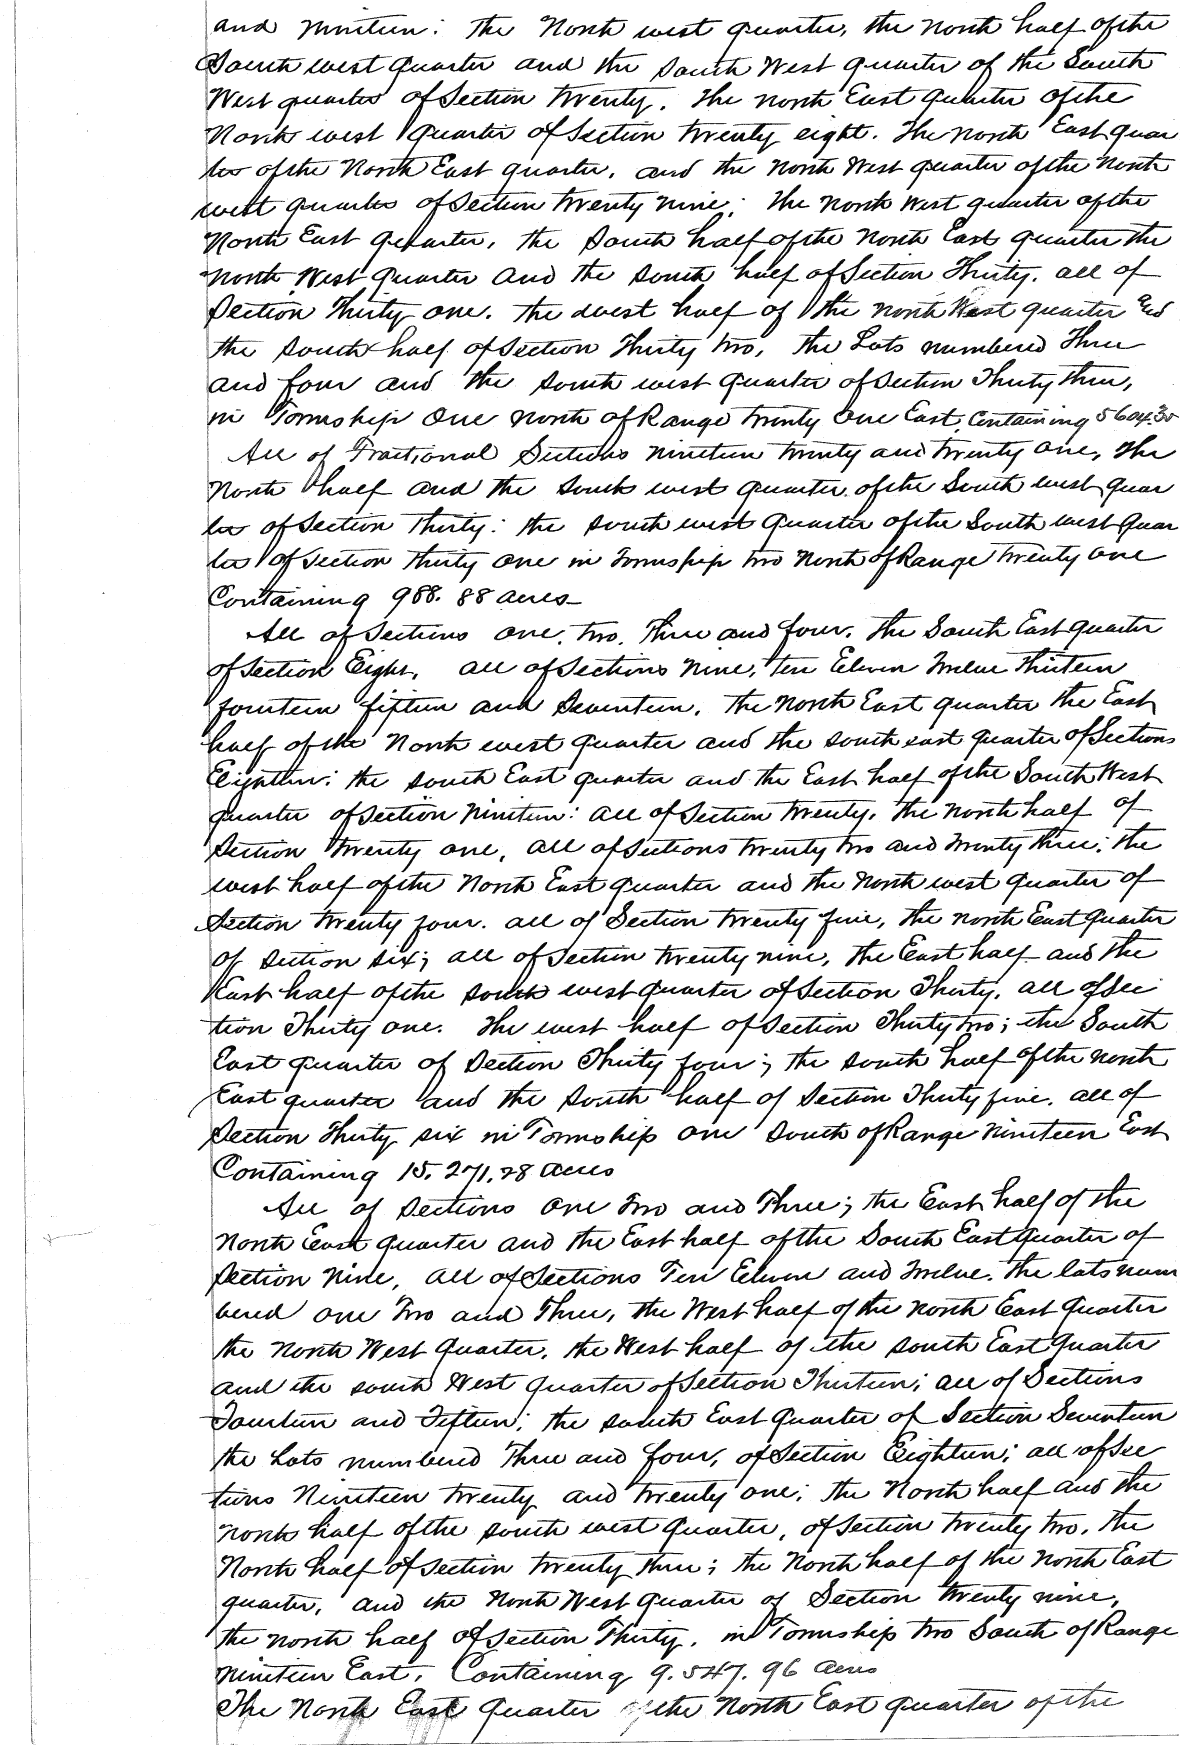 and nineteen: the North west quarter, the north half of the
South west quarter and the South West quarter of the South
West quarter of Section twenty. The north East quarter of the
North west quarter of Section twenty eight. The North East quar
ter of the North East quarter, and the North West quarter of the North
west quarter of Section twenty nine; the North West quarter of the
North East quarter, the South half of the North East quarter the
North West quarter and the South half of Section Thirty. all of
Section Thirty one. The west half of the North West quarter and
the South half of Section Thirty two, the Lots numbered Three
and four and the South west quarter of Section Thirty three,
in Township One North of Range twenty One East, Containing 5604.30
All of Fractional Sections nineteen twenty and twenty one, the
North half and the South west quarter of the South west quar
ter of Section Thirty: the South west quarter of the South west quar
ter of Section Thirty one in Township two North of Range twenty one
Containing 988.88 acres
All of Sections one, two, Three and four. The South East quarter
of Section Eight, all of Sections Nine, ten Eleven Twelve Thirteen
fourteen fifteen and Seventeen. The North East quarter the East
half of the North west quarter and the south east quarter of Sections
Eighteen: the South East quarter and the East half of the South West
quarter of Section Nineteen: all of Section twenty, the North half of
Section twenty one, all of Sections twenty two and twenty three; the
west half of the North East quarter and the North west quarter of
Section twenty four. all of Section twenty five, the North East quarter
of section six; all of Section twenty nine, the East half and the
East half of the South west quarter of Section Thirty. all of Sec
tion Thirty one. The west half of Section Thirty two; the South
East quarter of Section Thirty four; the South half of the North
East quarter and the South half of Section Thirty five. all of
Section Thirty six in Township one South of Range Nineteen East
Containing 15.271.28 acres
All of Sections One Two and Three; the East half of the
North East quarter and the East half of the South East quarter of
Section Nine, all of Sections Ten Eleven and Twelve. The lots num
bered one Two and Three, the West half of the North East quarter
the North West quarter, the West half of the South East quarter
and the South West quarter of Section Thirteen; all of Sections
Fourteen and Fifteen; the South East quarter of Section Seventeen
the Lots numbered Three and four, of Section Eighteen; all of Sec
tions Nineteen twenty and twenty one; the North half and the
North half of the South west quarter, of Section twenty two, the
North half of Section twenty three; the North half of the North East
quarter, and the North West quarter of Section twenty nine,
the North half of Section Thirty, in Township two South of Range
Nineteen East. Containing 9.547.96 acres
The North East quarter of the North East quarter of the